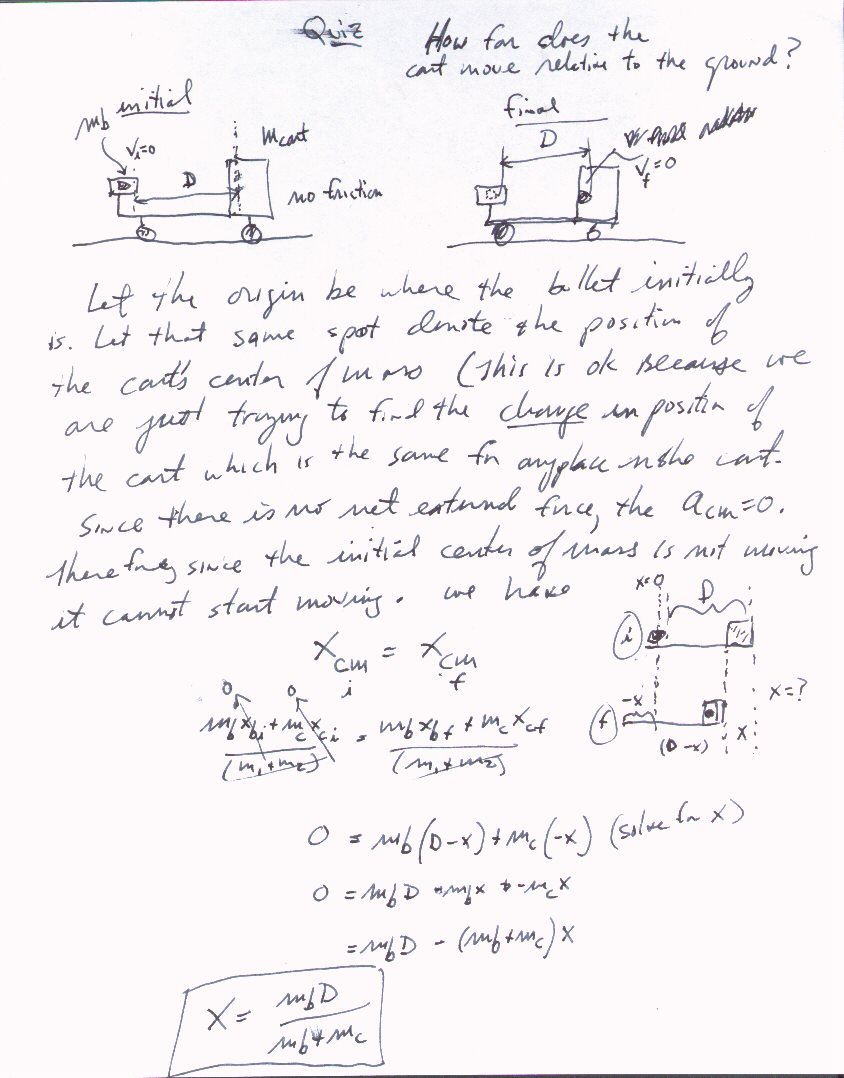 Quiz
How far does the
cart move relative to the ground?
initial
mb
Vi=0
D
mcart
no friction
final
D
Vf=0
Let the origin be where the bullet initially
is. Let that same spot denote the position of
the cart's center of mass (This is ok because we
are just trying to find the change in position of
the cart which is the same for anyplace on the cart.
Since there is no net external force, the acm=0.
Therefore, since the initial center of mass is not moving
it cannot start moving. we have
x=0
D
i
-x
f
(D-x)
x
x=?
Xcmi = Xcmf
0 0
mbxbi + mcxci = mbxbf + mcxcf
(m1+m2) (m1+m2)
0 = mb(D-x) + mc(-x) (solve for x)
0 = mbD - mbx + -mcx
= mbD - (mb+mc)x
X = mbD
mb+mc